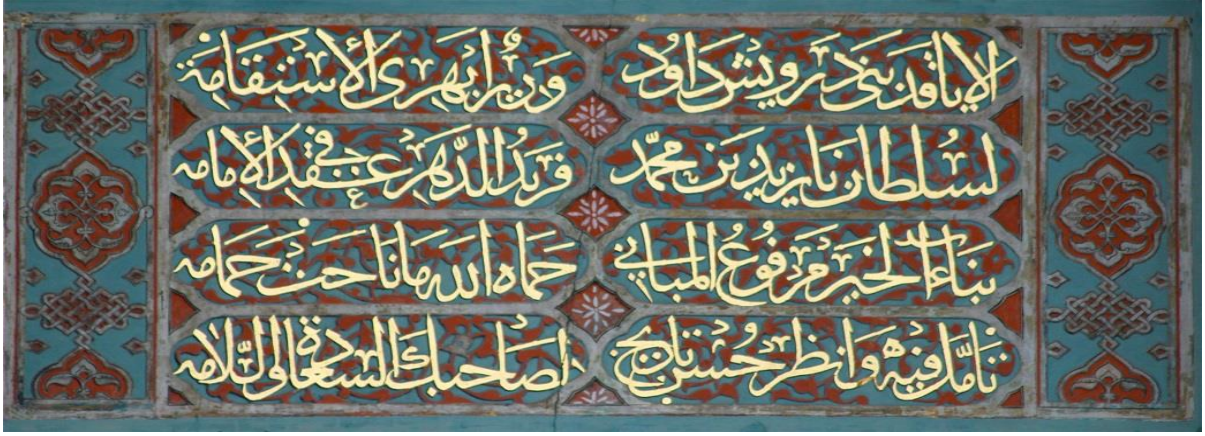 الا يا قد بنى درويش داود وزيرا بهرى الاستقامة
لسلطان بايزيد بن محمد فريد الدهر في عقد الامامه
بناء الخير مرفوع المباني حماه الله ما ناحت حمامه
تأمل فيه وانظر حسن تاريخ اصاحبك السعادة والسلامه